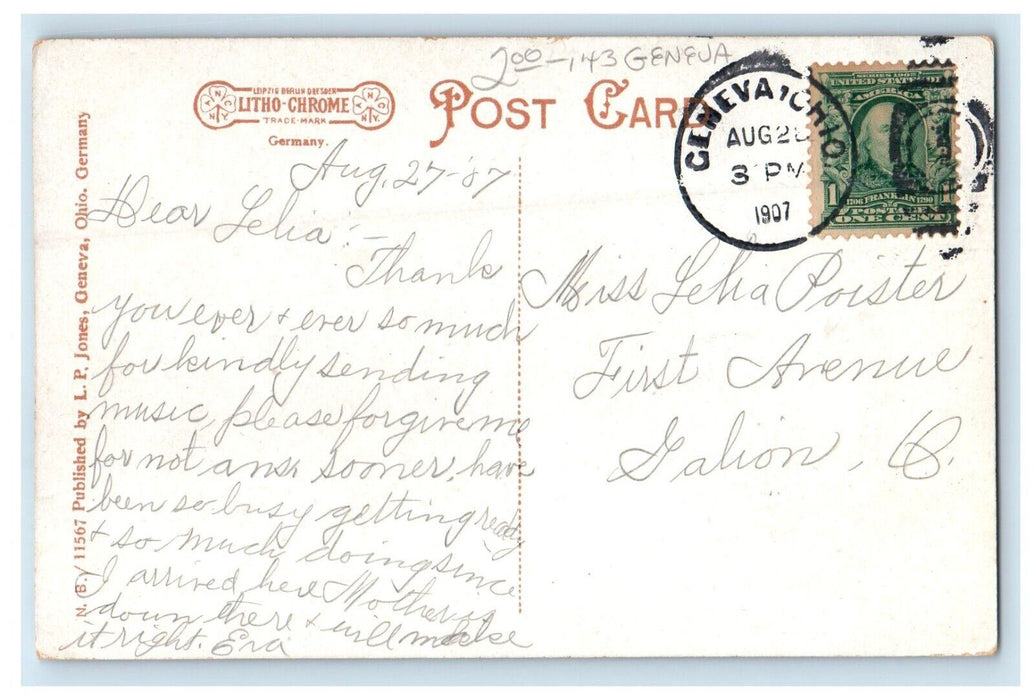 2.00 - 143 GENEVA
LEIPZIG BERLIN DRESDEN
LITHO-CHROME
TRADE-MARK
Germany.
POST CARD
GENEVA, OHIO
AUG 28
3 PM
1907
SERIES 1902
UNITED STATES OF
AMERICA
1 1
1706 FRANKLIN 1790
POSTAGE
ONE CENT
N. B. / 11567 Published by L. P. Jones, Geneva, Ohio. Germany
Aug. 27-07
Dear Lelia:-
Thank
you ever & ever so much
for kindly sending
music, please forgive me
for not ans. sooner, have
been so busy getting ready
& so much doing since
I arrived here Mother is
down there & will make
it right. Eva
Miss Lelia Poister
First Avenue
Galion, O.